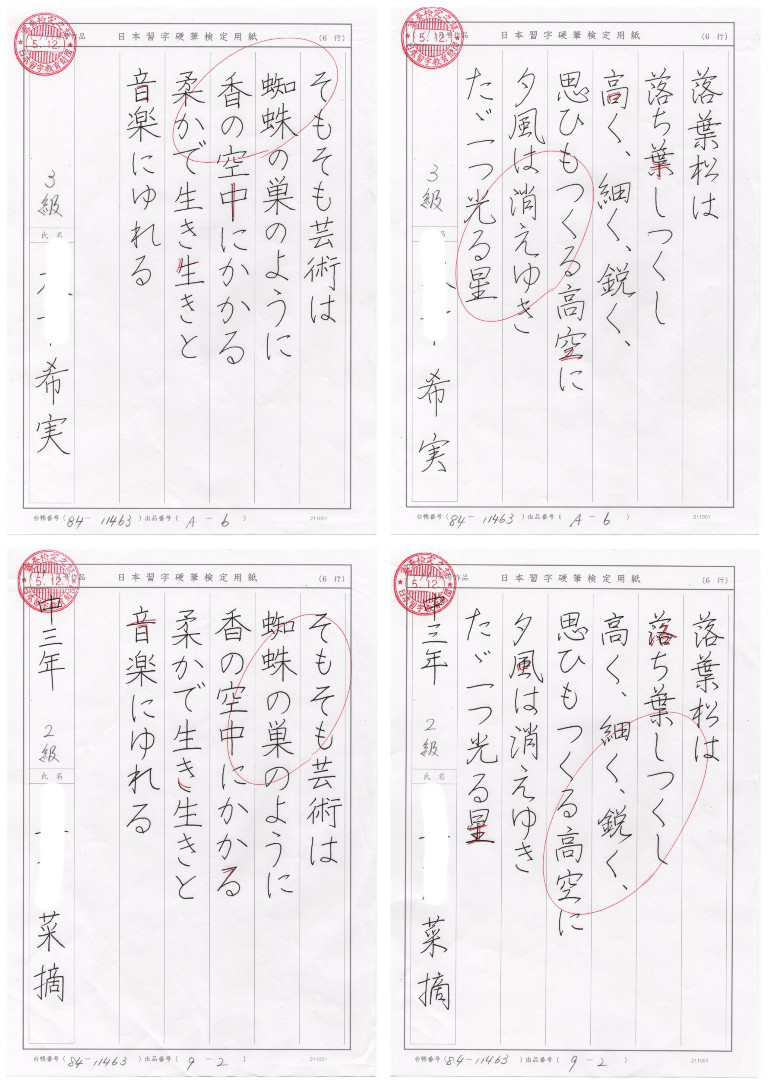 日本習字硬筆検定用紙
(6 行)
5.12.
日本習字教育財団
そもそも芸術は
蜘蛛の巣のように
香の空中にかかる
柔かで生き生きと
音楽にゆれる
3級
氏名
希実
台帳番号(84-11463)出品番号(A-6)
211001
日本習字硬筆検定用紙
(6 行)
5.12.
日本習字教育財団
落葉松は
落ち葉しつくし
高く、細く、鋭く、
思ひもつくる高空に
夕風は消えゆき
たゞ一つ光る星
3級
名
希実
台帳番号(84-11463)出品番号(A-6)
211001
日本習字硬筆検定用紙
(6 行)
5.12.
日本習字教育財団
そもそも芸術は
蜘蛛の巣のように
香の空中にかかる
柔かで生き生きと
音楽にゆれる
中三年 2級
氏名
菜摘
台帳番号(84-11463)出品番号(9-2)
211001
日本習字硬筆検定用紙
(6 行)
5.12.
日本習字教育財団
落葉松は
落ち葉しつくし
高く、細く、鋭く、
思ひもつくる高空に
夕風は消えゆき
たゞ一つ光る星
中三年 2級
氏名
菜摘
台帳番号(84-11463)出品番号(9-2)
211001